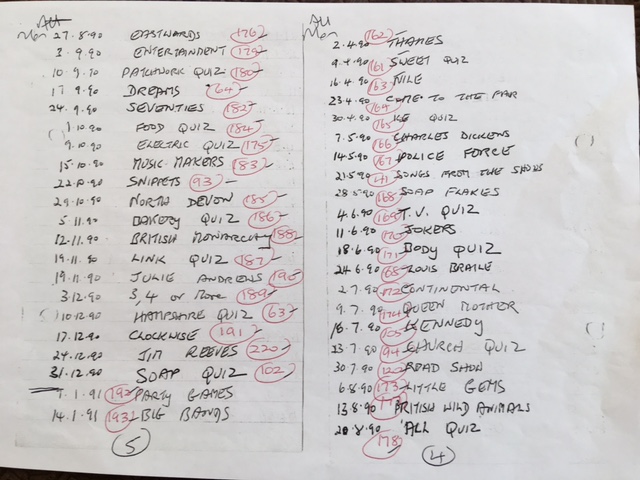 All
Mon 27.8.90 EASTWARDS 176
3.9.90 ENTERTAINMENT 179
10.9.90 PATCHWORK QUIZ 180
17.9.90 DREAMS 64
24.9.90 SEVENTIES 182
1.10.90 FOOD QUIZ 184
9.10.90 ELECTRIC QUIZ 175
15.10.90 MUSIC MAKERS 183
22.10.90 SNIPPETS 93
29.10.90 NORTH DEVON 185
5.11.90 BAKERY QUIZ 186
12.11.90 BRITISH MONARCHY 188
19.11.90 LINK QUIZ 187
19.11.90 JULIE ANDREWS 190
3.12.90 3, 4 or More 189
10.12.90 HAMPSHIRE QUIZ 63
17.12.90 CLOCKWISE 191
24.12.90 JIM REEVES 220
31.12.90 SOAP QUIZ 102
7.1.91 192 PARTY GAMES
14.1.91 193 BIG BANDS
5
All
Mon 2.4.90 162 THAMES
9.4.90 161 SWEET QUIZ
16.4.90 163 NILE
23.4.90 164 COME TO THE FAIR
30.4.90 165 KE QUIZ
7.5.90 166 CHARLES DICKENS
14.5.90 167 POLICE FORCE
21.5.90 41 SONGS FROM THE SHOWS
28.5.90 168 SOAP FLAKES
4.6.90 169 T.V. QUIZ
11.6.90 170 JOKERS
18.6.90 171 BODY QUIZ
24.6.90 68 LOUIS BRAILE
2.7.90 172 CONTINENTAL
9.7.90 174 QUEEN MOTHER
16.7.90 105 KENNEDY
23.7.90 94 CHURCH QUIZ
30.7.90 122 ROAD SHOW
6.8.90 173 LITTLE GEMS
13.8.90 BRITISH WILD ANIMALS
20.8.90 178 'ALL QUIZ
4